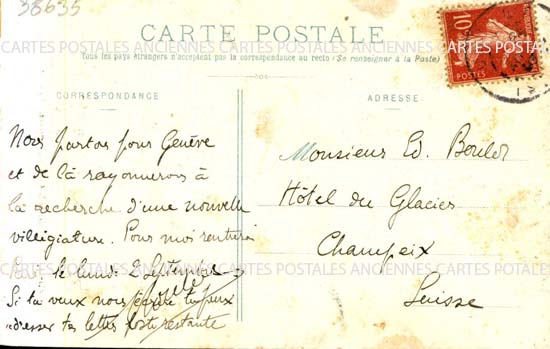 38635
CARTE POSTALE
CARTES POSTALES ANCIENNES CARTES POSTALES ANCIENNES CARTES POSTALES
Tous les pays étrangers n'acceptent pas la correspondance au recto (Se renseigner à la Poste)
10
POSTES
CORRESPONDANCE
ADRESSE
Nous partons pour Genève
et de là rayonnerons à
la recherche d'une nouvelle
villégiature. Pour moi rentrerai
le lundi Septembre
Si tu veux nous écrire tu peux
adresser tes lettres poste restante
Monsieur Ed.
Hôtel du Glacier
Champeix
Suisse
CARTES POSTALES ANCIENNES CARTES POSTALES ANCIENNES CARTES POSTALES